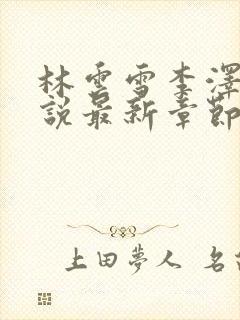 林雲雪李澤
說最新章節
上田夢人 名